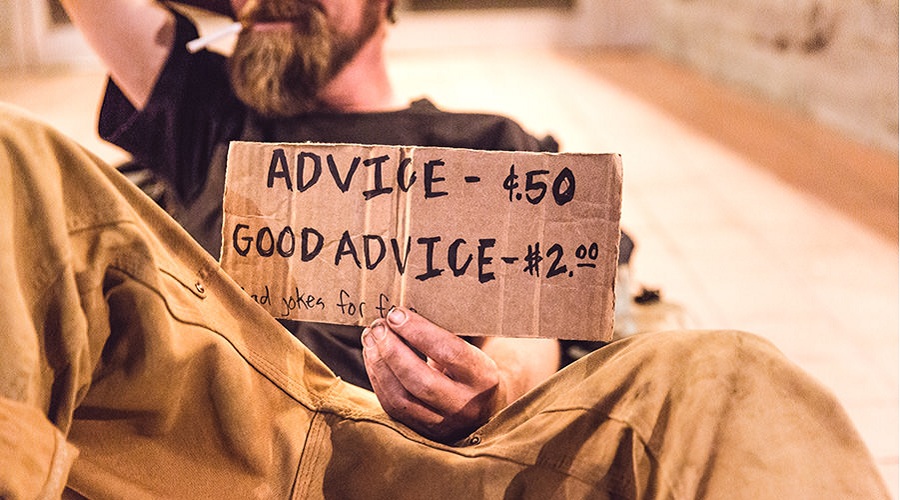 ADVICE - ¢.50
GOOD ADVICE - $2.00
jokes for